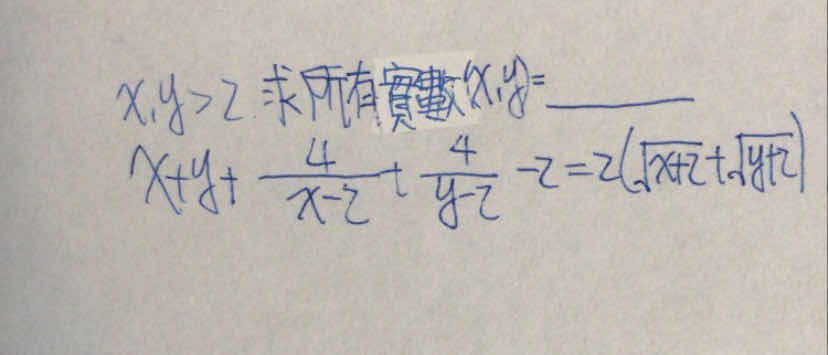 x,y>2 求所有實數(x,y)=______
x+y+\frac{4}{x-2}+\frac{4}{y-2}-2=2(\sqrt{x+2}+\sqrt{y+2})